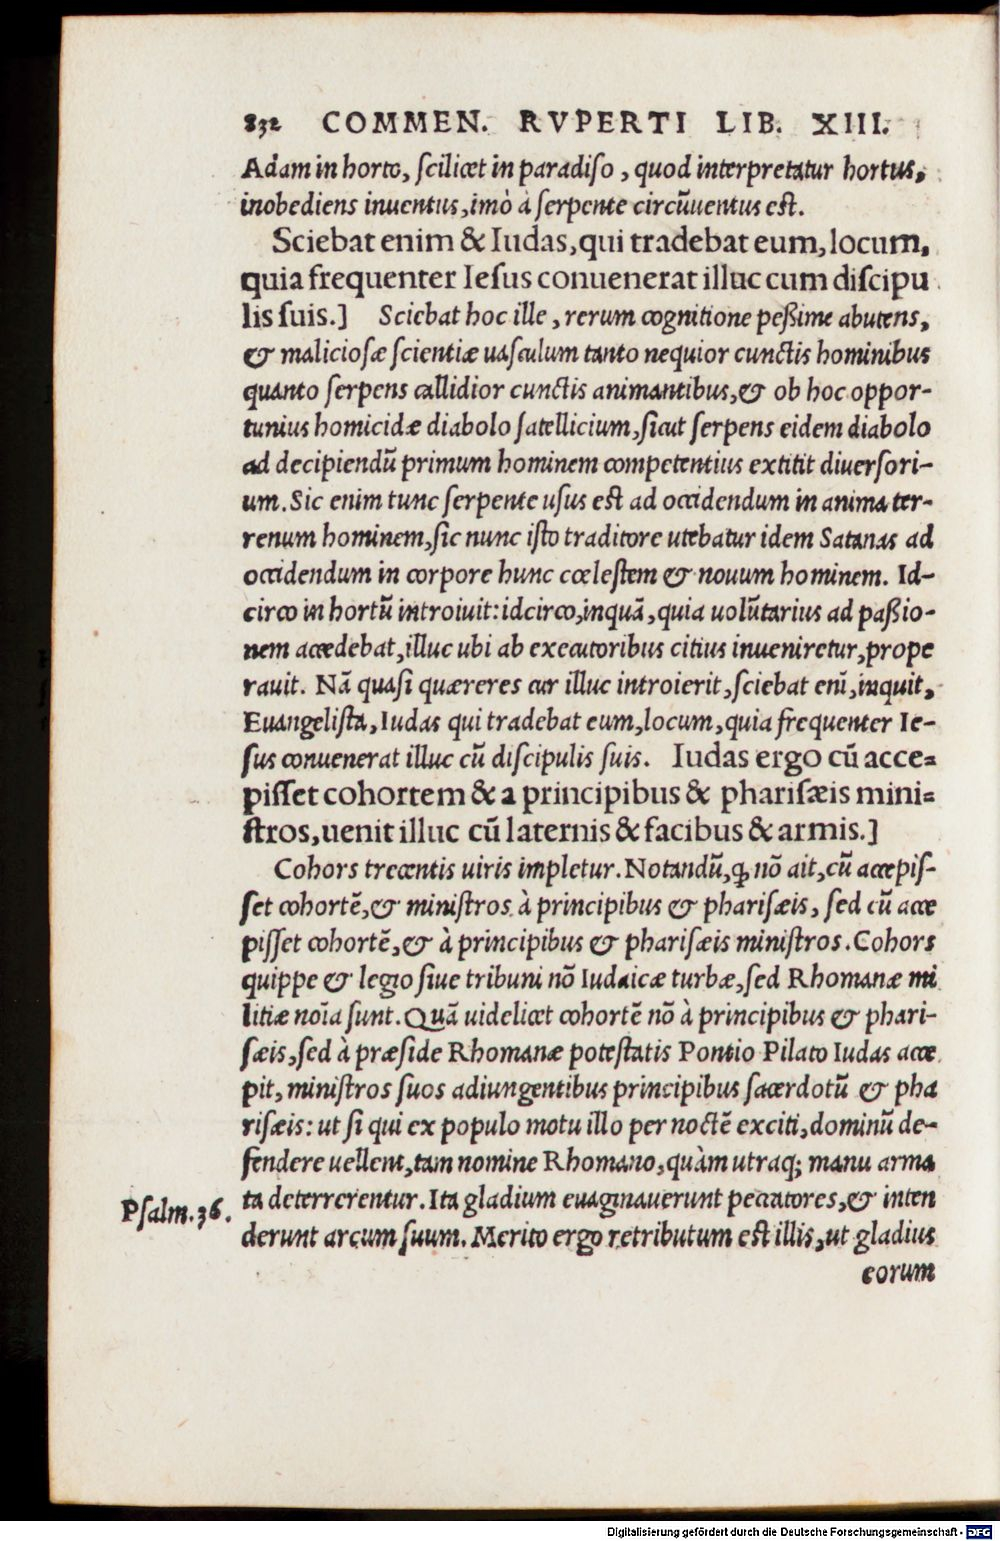 832 COMMEN. RVPERTI LIB. XIII.
Adam in horto, ſcilicet in paradiſo, quod interpretatur hortus,
inobediens inuentus, imò à ſerpente circũuentus eſt.
Sciebat enim & Iudas, qui tradebat eum, locum,
quia frequenter Ieſus conuenerat illuc cum diſcipu
lis ſuis.] Sciebat hoc ille, rerum cognitione peßime abutens,
& malicioſæ ſcientiæ uaſculum tanto nequior cunctis hominibus
quanto ſerpens callidior cunctis animantibus, & ob hoc oppor-
tunius homicidæ diabolo ſatellicium, ſicut ſerpens eidem diabolo
ad decipiendũ primum hominem competentius extitit diuerſori-
um. Sic enim tunc ſerpente uſus eſt ad occidendum in anima ter-
renum hominem, ſic nunc iſto traditore utebatur idem Satanas ad
occidendum in corpore hunc cœleſtem & nouum hominem. Id-
circo in hortũ introiuit: idcirco, inquã, quia uolũtarius ad paßio-
nem accedebat, illuc ubi ab executoribus citius inueniretur, prope
rauit. Nã quaſi quæreres cur illuc introierit, ſciebat eni̅, inquit,
Euangeliſta, Iudas qui tradebat eum, locum, quia frequenter Ie-
ſus conuenerat illuc cũ diſcipulis ſuis. Iudas ergo cũ acce=
piſſet cohortem & a principibus & phariſæis mini=
ſtros, uenit illuc cũ laternis & facibus & armis.]
Cohors trecentis uiris impletur. Notandũ, ꝙ nõ ait, cũ accepiſ-
ſet cohortẽ, & miniſtros à principibus & phariſæis, ſed cũ acce
piſſet cohortẽ, & à principibus & phariſæis miniſtros. Cohors
quippe & legio ſiue tribuni nõ Iudaicæ turbæ, ſed Rhomanæ mi
litiæ noi̅a ſunt. Quã uidelicet cohortẽ nõ à principibus & phari-
ſæis, ſed à præſide Rhomanæ poteſtatis Pontio Pilato Iudas acce
pit, miniſtros ſuos adiungentibus principibus ſacerdotũ & pha
riſæis: ut ſi qui ex populo motu illo per noctẽ exciti, dominũ de-
fendere uellent, tam nomine Rhomano, quàm utraq; manu arma
ta deterrerentur. Ita gladium euaginauerunt peccatores, & inten
Pſalm. 36.
derunt arcum ſuum. Merito ergo retributum eſt illis, ut gladius
eorum
Digitalisierung gefördert durch die Deutsche Forschungsgemeinschaft - DFG